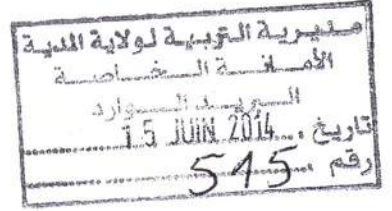 مديرية التربية لولاية المدية
الأمانة الخاصة
البريد الوارد
تاريخ 15 JUIN 2014
رقم 545